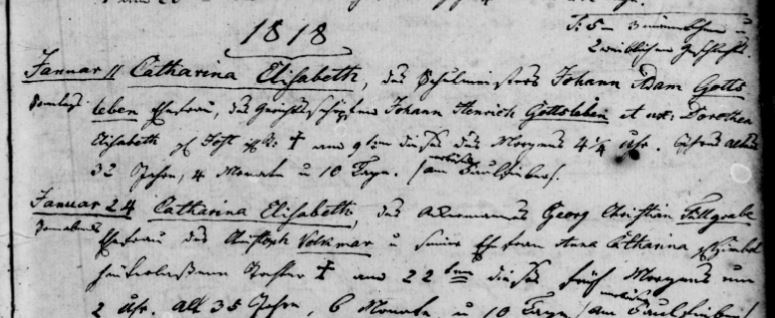 1818
S: 5 — 3 männlichen u
2 weiblichen Geschlechts.
Januar 11 Catharina Elisabeth, des Schulmeisters Johann Adam Gotts
leben Ehefrau, des Johann Henrich Gottsleben et ux: Dorothea
Elisabeth † am 9ten dieses des Morgens 4 1/4 Uhr.
32 Jahre, 4 Monate u 10 Tage. /am Faulfieber/.
Januar 24 Catharina Elisabeth, des Ackermanns Georg Christian Füllgrabe
Ehefrau des Christoph Volkmar u seiner Ehefrau Anna Catharina
hinterlassene Tochter † am 22ten dieses früh Morgens um
2 Uhr. alt 35 Jahre, 6 Monate u 10 Tage /am Faulfieber/